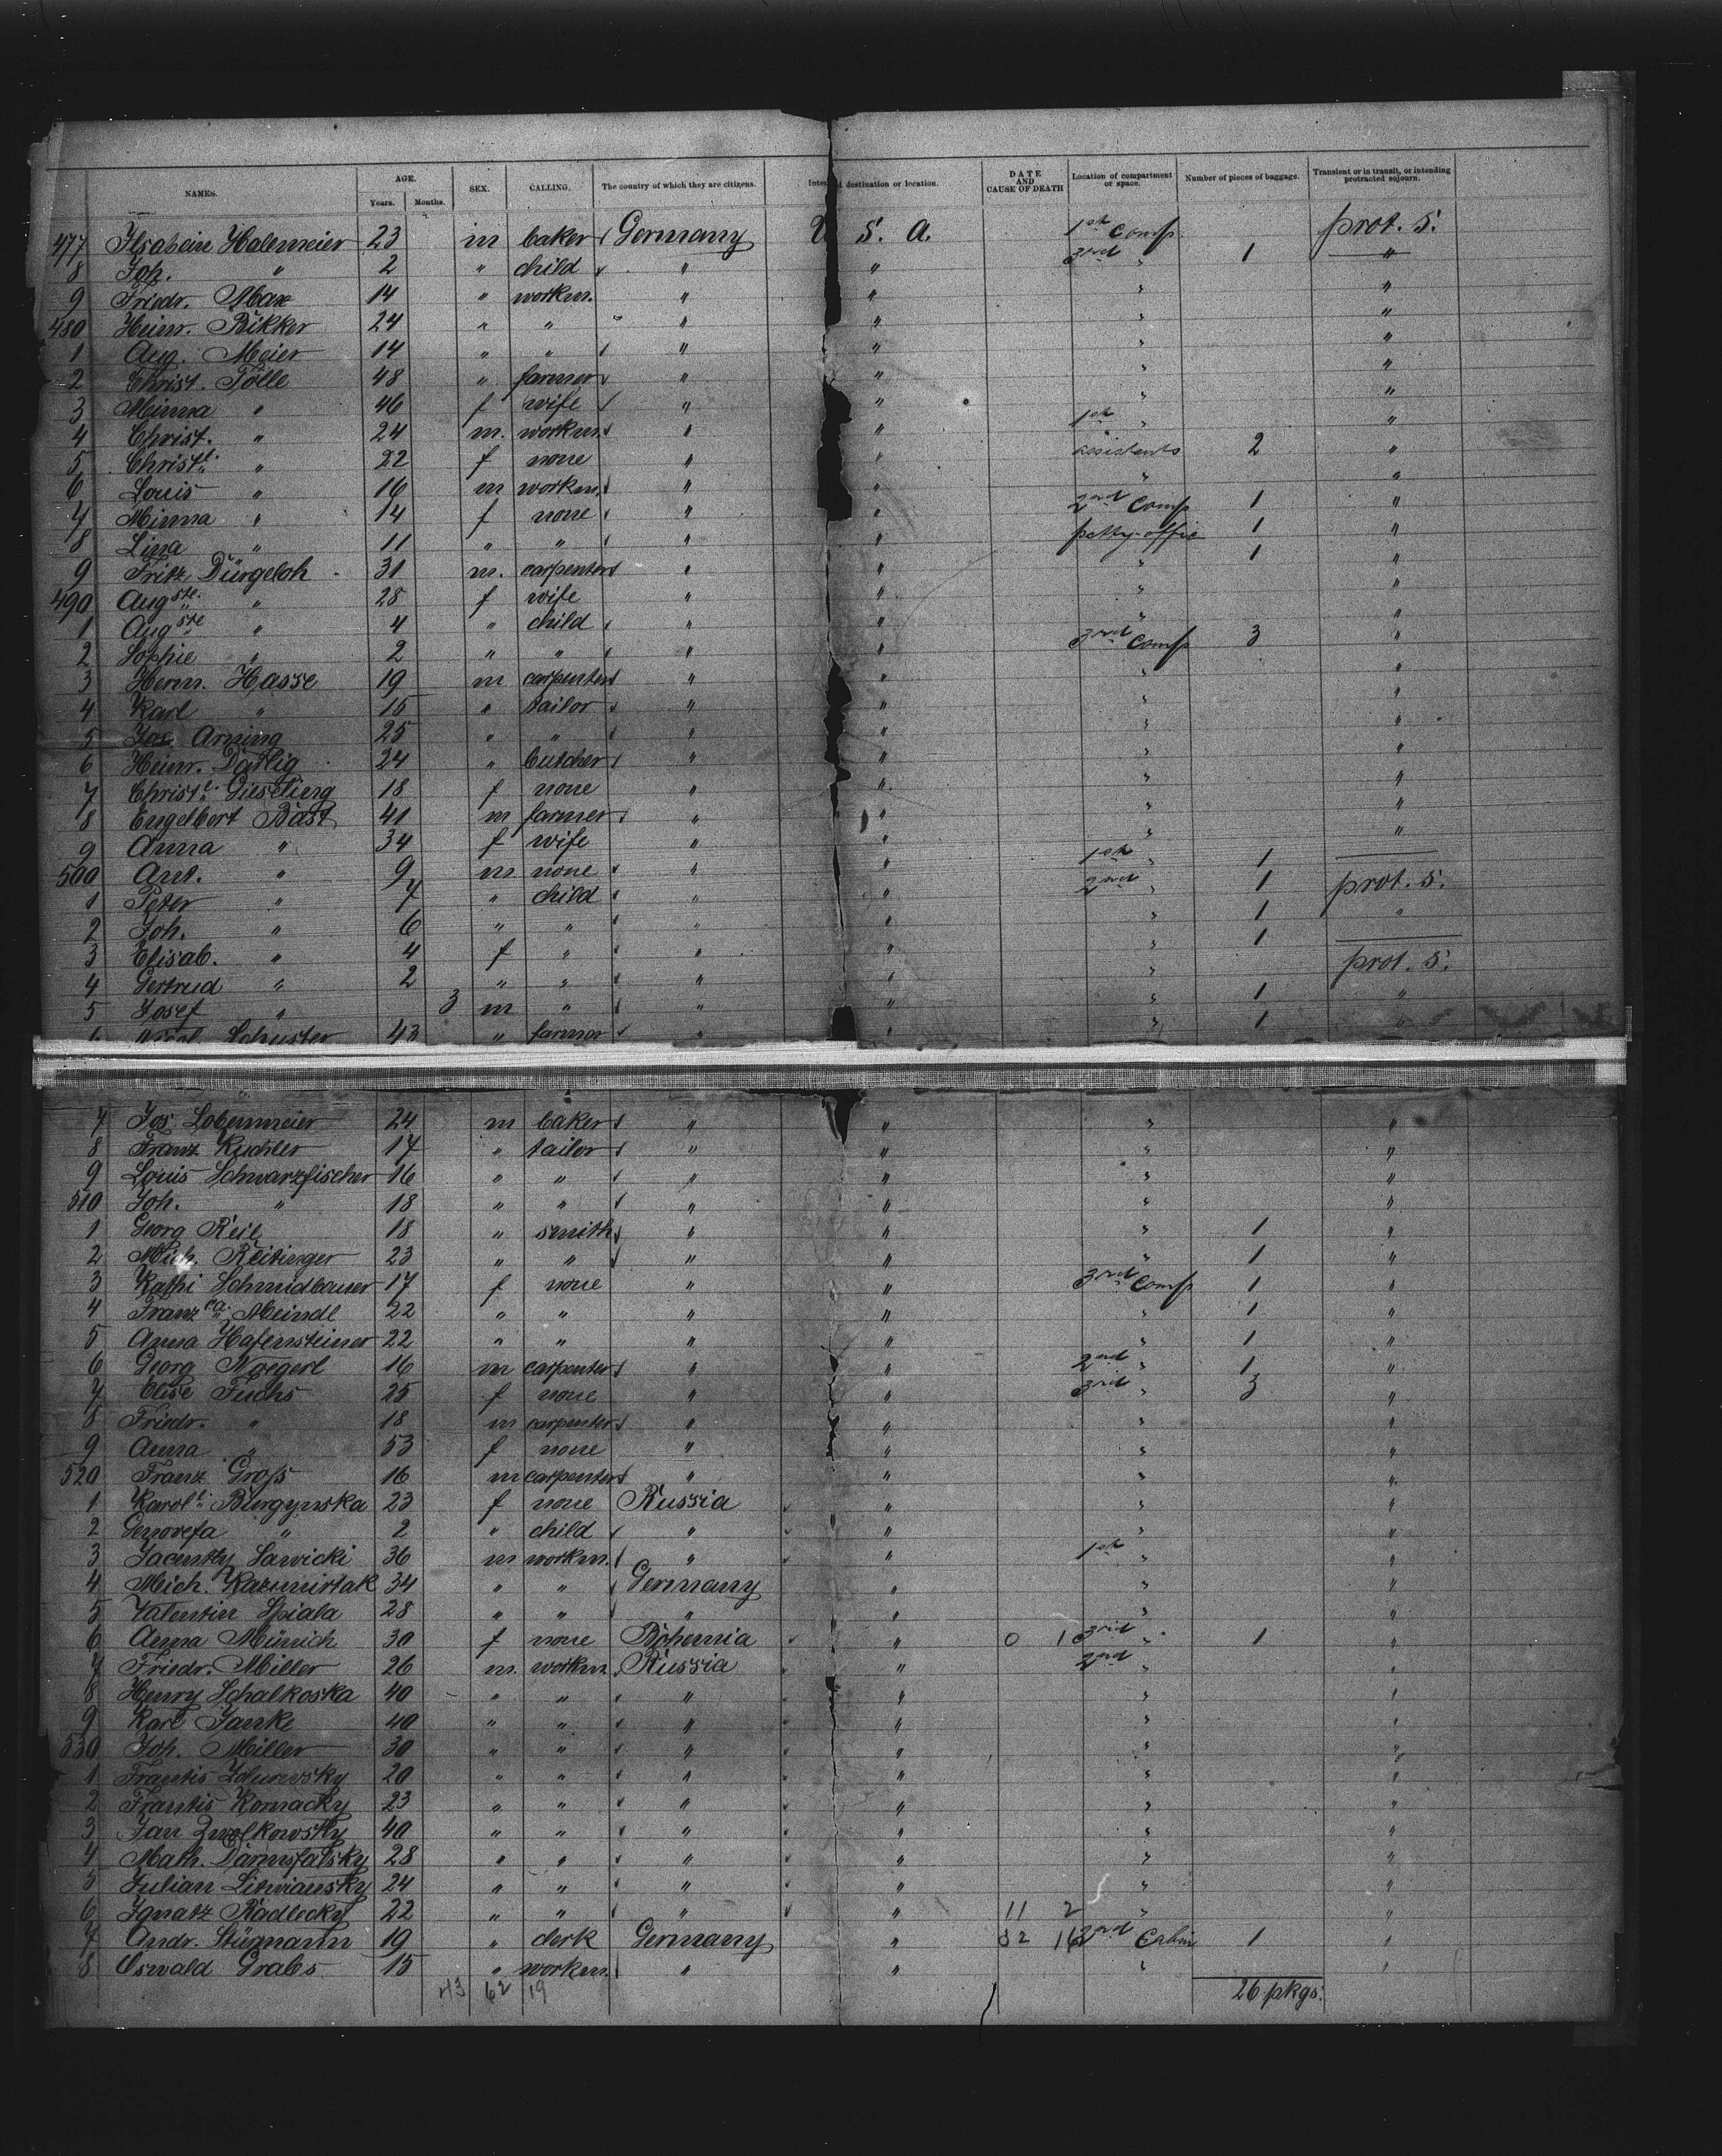 NAMES. AGE. SEX. CALLING. The country of which they are citizens. destination or location. DATE AND CAUSE OF DEATH Location of compartment or space. Number of pieces of baggage. Transient or in transit, or intending protracted sojourn.
Years. Months.
477 Halemeier 23 m baker Germany U. S. A. 1st Comp prot. S.
8 Joh. " 2 " child " " 3rd " 1 "
9 Friedr. Max 14 " workm. " " " "
480 Heinr. Rikker 24 " " " " " "
1 Aug. Meier 14 " " " " " "
2 Christ. Tölle 48 " farmer " " " "
3 Minna " 46 f wife " " " "
4 Christ. " 24 m. workm. " " 1st " "
5 Christ. " 22 f none " " assistents 2 "
6 Louis " 16 m workm. " " " "
7 Minna " 14 f none " " 2nd Comp 1 "
8 Lina " 11 " " " " petty-offic 1 "
9 Fritz Dürgeloh 31 m. carpenter " " " 1 "
490 Augste. " 28 f wife " " " "
1 Augste " 4 " child " " " "
2 Sophie " 2 " " " " 3rd Comp 3 "
3 Herm. Hasse 19 m carpenter " " " "
4 Karl " 15 " tailor " " " "
5 Jos. Arning 25 " " " " " "
6 Heinr. 24 " butcher " " " "
7 Christ. 18 f none " " " "
8 Engelbert Bast 41 m farmer " " " "
9 Anna " 34 f wife " " " "
500 Ant. " 9 m none " " 1st " 1
1 Peter " 7 " child " " 2nd " 1 prot. S.
2 Joh. " 6 " " " " " 1 "
3 Elisab. " 4 f " " " " 1
4 Gertrud " 2 " " " " " prot. S.
5 Josef " 3 m " " " " 1 "
Schuster 43 " farmer " " " 1 "
7 Jos. Lobermeier 24 m baker " " " "
8 Franz Kuchler 17 " tailor " " " "
9 Louis Schwarzfischer 16 " " " " " "
510 Joh. " 18 " " " " " "
1 Georg Reil 18 " smith " " " 1 "
2 Mich. Reitinger 23 " " " " " 1 "
3 Kathi Schmidbauer 17 f none " " 3rd Comp 1 "
4 Franzca. Meindl 22 " " " " " 1 "
5 Anna Hafensteiner 22 " " " " " 1 "
6 Georg 16 m carpenter " " 2nd " 1 "
7 Elise Fuchs 25 f none " " 3rd " 3 "
8 Friedr. " 18 m carpenter " " " "
9 Anna " 53 f none " " " "
520 Franz Groß 16 m carpenter " " " "
1 Burgynska 23 f none Russia " " "
2 Genovefa " 2 " child " " " "
3 Sawicki 36 m workm. " " 1st " "
4 Mich. Kazmirtak 34 " " Germany " " "
5 Valentin Spiala 28 " " " " " "
6 Anna Münich 30 f none Bohemia " 0 1 3rd " 1 "
7 Friedr. Miller 26 m. workm. Russia " 2nd " "
8 Henry Schalkoska 40 " " " " " "
9 Karl Janke 40 " " " " " "
530 Joh. Miller 30 " " " " " "
1 Frantis 20 " " " " " "
2 Frantis Komacky 23 " " " " " "
3 Jan Zwolkowsky 40 " " " " " "
4 Math. 28 " " " " " "
5 Julian Litwiansky 24 " " " " " "
6 Ignatz Radlecky 22 " " " " 11 2 " "
7 Andr. Stürmann 19 " clerk Germany " 2nd Cabin 1 "
8 Oswald Grabs 15 " workm. " " " "
43 62 19 26 pkgs.